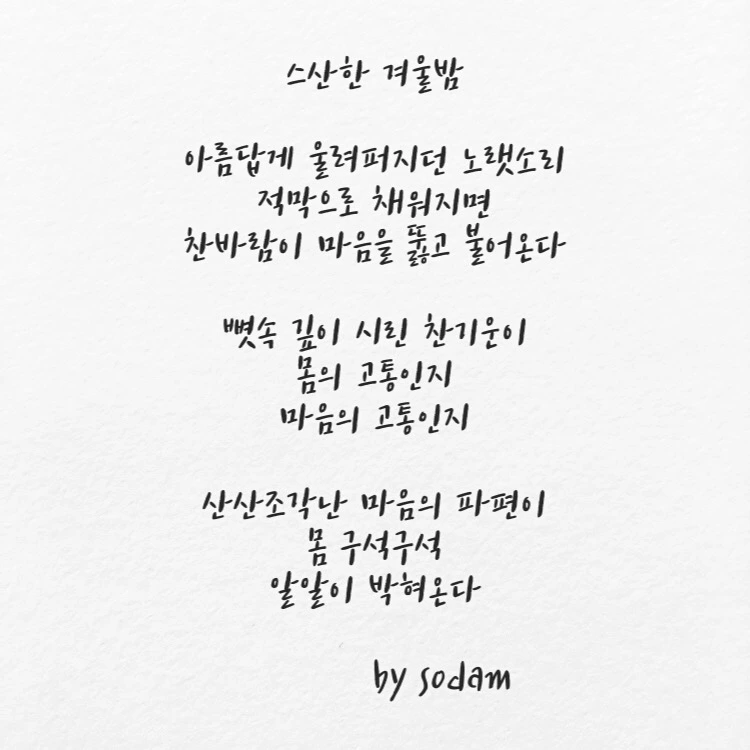 스산한 겨울밤
아름답게 울려퍼지던 노랫소리
적막으로 채워지면
찬바람이 마음을 뚫고 불어온다
뼛속 깊이 시린 찬기운이
몸의 고통인지
마음의 고통인지
산산조각난 마음의 파편이
몸 구석구석
알알이 박혀온다
by sodam